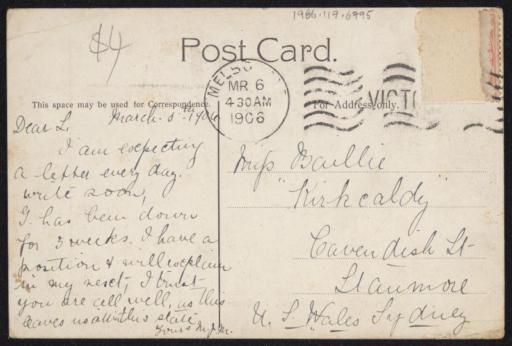 1986.1117.6995
$4
Post Card.
MELBOURNE
MR 6
4 30 AM
1906
VICTO
This space may be used for Correspondence.
For Address only.
March 5th 1906
Dear L,
I am expecting
a letter every day.
write soon,
G. has been down
for 3 weeks. I have a
position & will explain
in my next, I trust
you are all well, as this
leaves us all this state
Yours M.M.
Miss Baillie
"Kirkcaldy"
Cavendish St
Stanmore
N. S. Wales Sydney